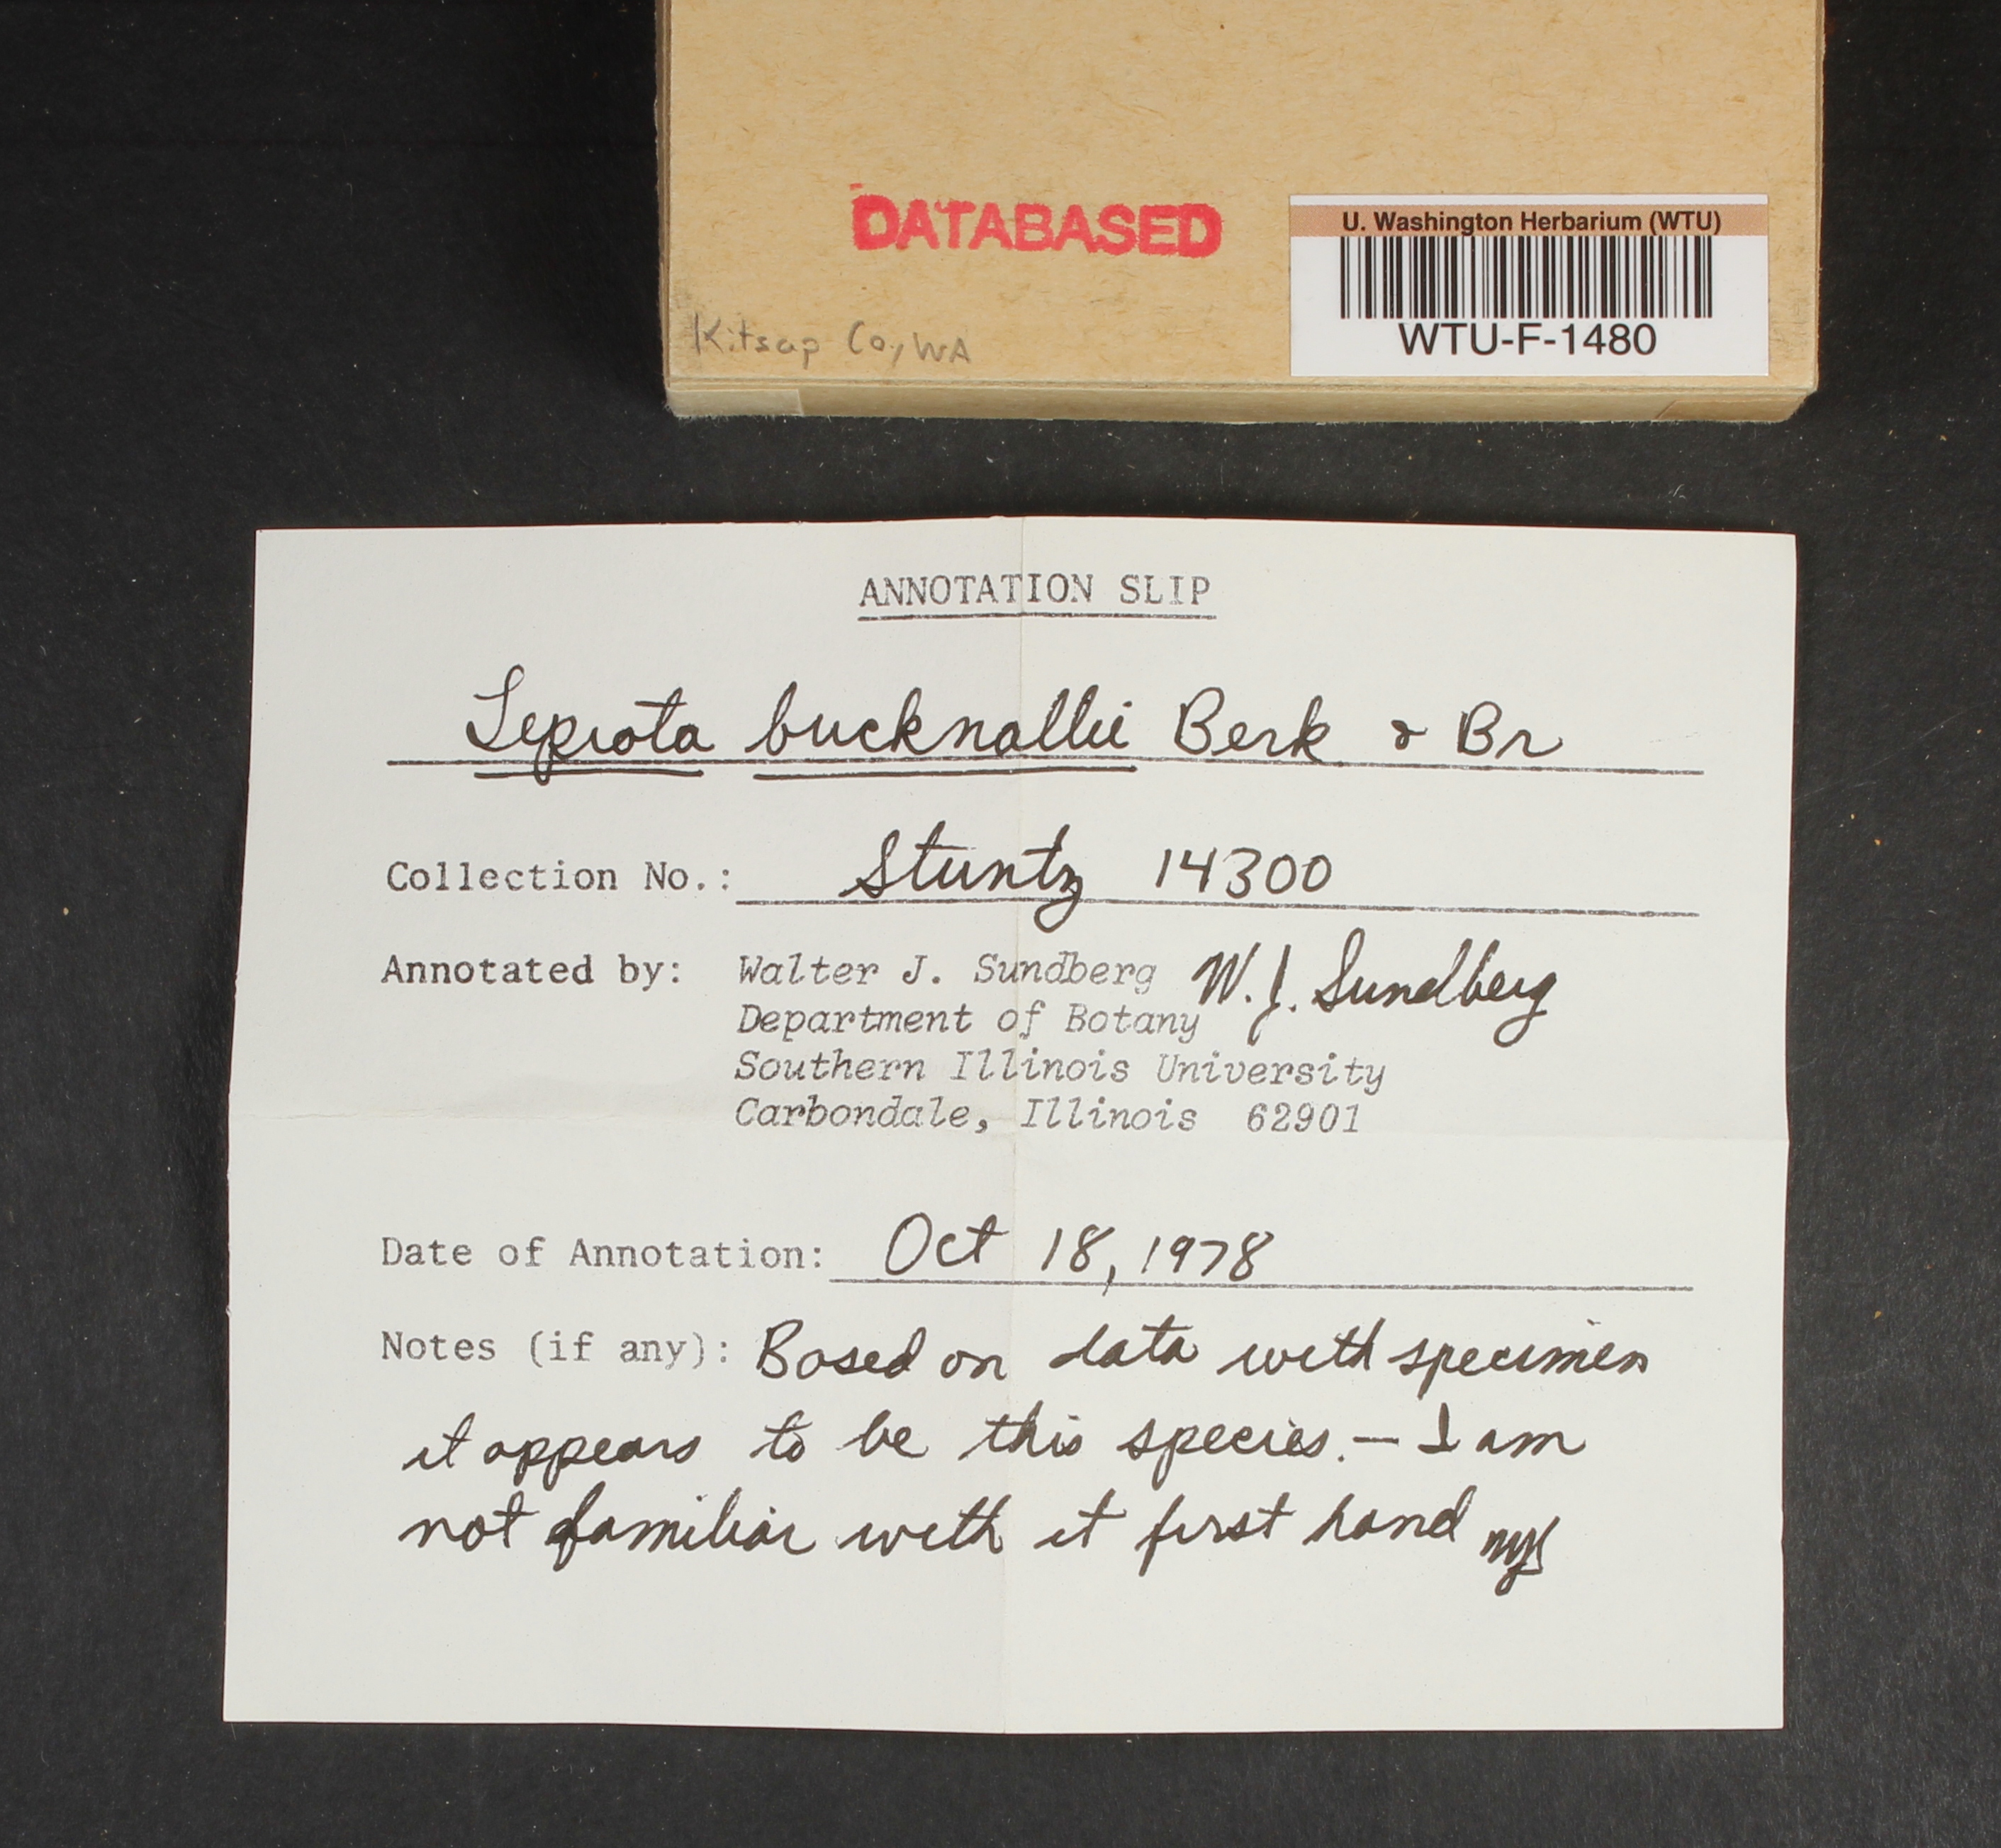 DATABASED
U. Washington Herbarium (WTU)
WTU-F-1480
Kitsap Co, WA
ANNOTATION SLIP
Lepiota bucknallii Berk & Br
Collection No.: Stuntz 14300
Annotated by: Walter J. Sundberg W. J. Sundberg
Department of Botany
Southern Illinois University
Carbondale, Illinois 62901
Date of Annotation: Oct 18, 1978
Notes (if any): Based on data with specimen
it appears to be this species. — I am
not familiar with it first hand